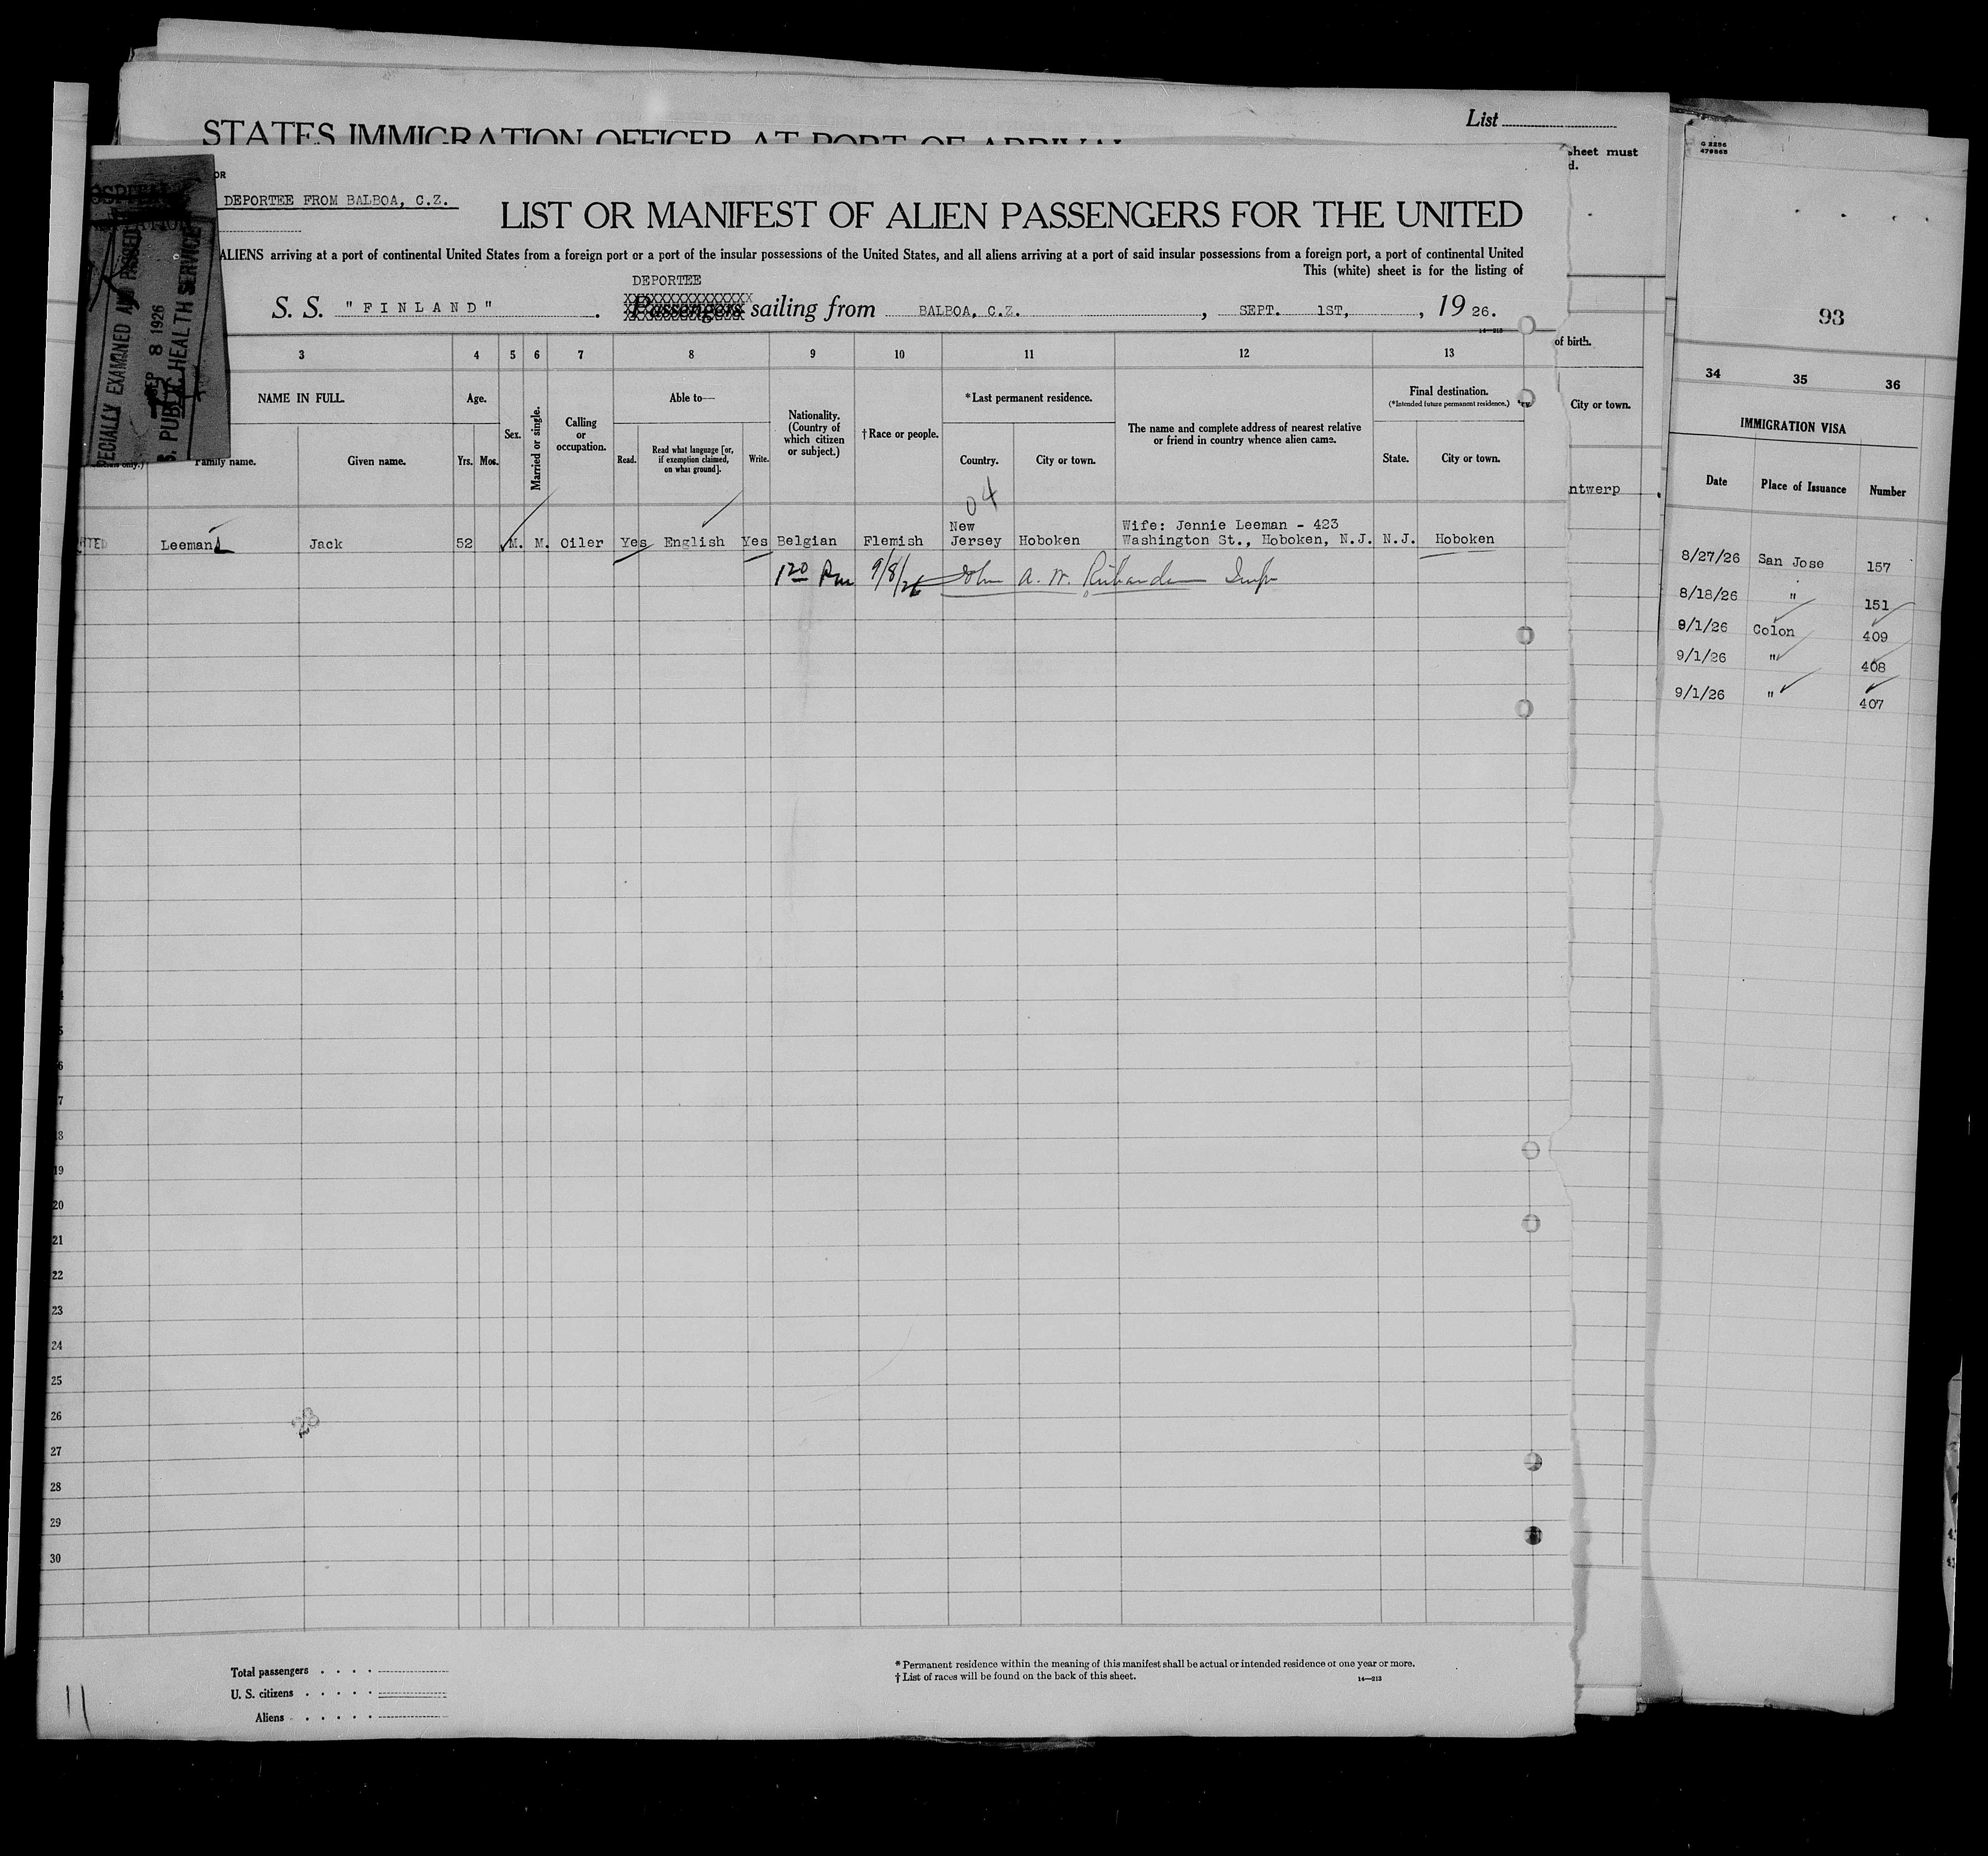 List
STATES IMMIGRATION OFFICER AT PORT OF ARRIVAL
sheet must
d.
G 2256
479565
OR
DEPORTEE FROM BALBOA, C.Z.
LIST OR MANIFEST OF ALIEN PASSENGERS FOR THE UNITED
ALIENS arriving at a port of continental United States from a foreign port or a port of the insular possessions of the United States, and all aliens arriving at a port of said insular possessions from a foreign port, a port of continental United
This (white) sheet is for the listing of
DEPORTEE
S. S. "FINLAND". Passengers sailing from BALBOA, C.Z., SEPT. 1ST, , 19 26.
14—213
ECIALLY EXAMINED AND PASSED
SEP 8 1926
S. PUBLIC HEALTH SERVICE
93
3 4 5 6 7 8 9 10 11 12 13
of birth.
34 35 36
NAME IN FULL.
Family name. Given name.
Age.
Yrs. Mos.
Sex.
Married or single.
Calling or occupation.
Able to—
Read. Read what language [or, if exemption claimed, on what ground]. Write.
Nationality. (Country of which citizen or subject.)
†Race or people.
*Last permanent residence.
Country. City or town.
The name and complete address of nearest relative or friend in country whence alien came.
Final destination.
(*Intended future permanent residence.)
State. City or town.
City or town.
IMMIGRATION VISA
Date Place of Issuance Number
04
ntwerp
New Wife: Jennie Leeman - 423
Leeman Jack 52 M. M. Oiler Yes English Yes Belgian Flemish Jersey Hoboken Washington St., Hoboken, N.J. N.J. Hoboken
1 20 Pm 9/8/26 John A. W. Richards Insp
8/27/26 San Jose 157
8/18/26 " 151
9/1/26 Colon 409
9/1/26 " 408
9/1/26 " 407
19
20
21
22
23
24
25
26
27
28
29
30
28
Total passengers
U. S. citizens
Aliens
*Permanent residence within the meaning of this manifest shall be actual or intended residence of one year or more.
†List of races will be found on the back of this sheet.
14—213
11